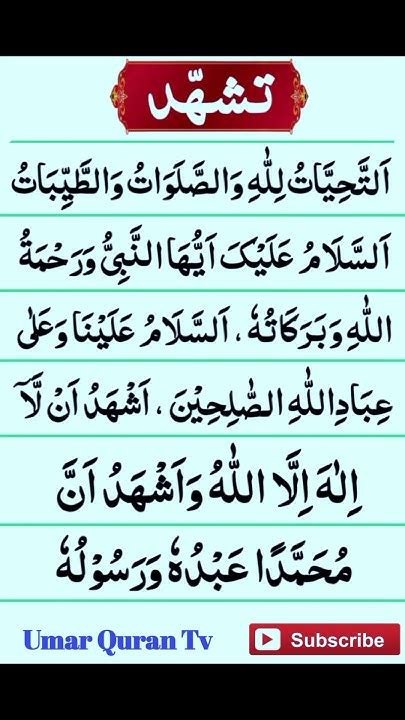 تشهّد
اَلتَّحِيَّاتُ لِلّٰهِ وَالصَّلَوَاتُ وَالطَّيِّبَاتُ
اَلسَّلَامُ عَلَيْكَ اَيُّهَا النَّبِيُّ وَرَحْمَةُ
اللّٰهِ وَبَرَكَاتُهٗ ، اَلسَّلَامُ عَلَيْنَا وَعَلٰى
عِبَادِ اللّٰهِ الصّٰلِحِيْنَ ، اَشْهَدُ اَنْ لَّآ
اِلٰهَ اِلَّا اللّٰهُ وَاَشْهَدُ اَنَّ
مُحَمَّدًا عَبْدُهٗ وَرَسُوْلُهٗ
Umar Quran Tv
Subscribe